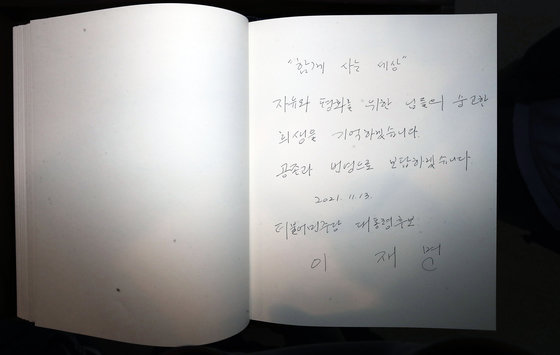 "함께 사는 세상"
자유와 평화를 위한 님들의 숭고한
희생을 기억하겠습니다.
공존과 번영으로 보답하겠습니다.
2021. 11. 13.
더불어민주당 대통령후보
이 재 명